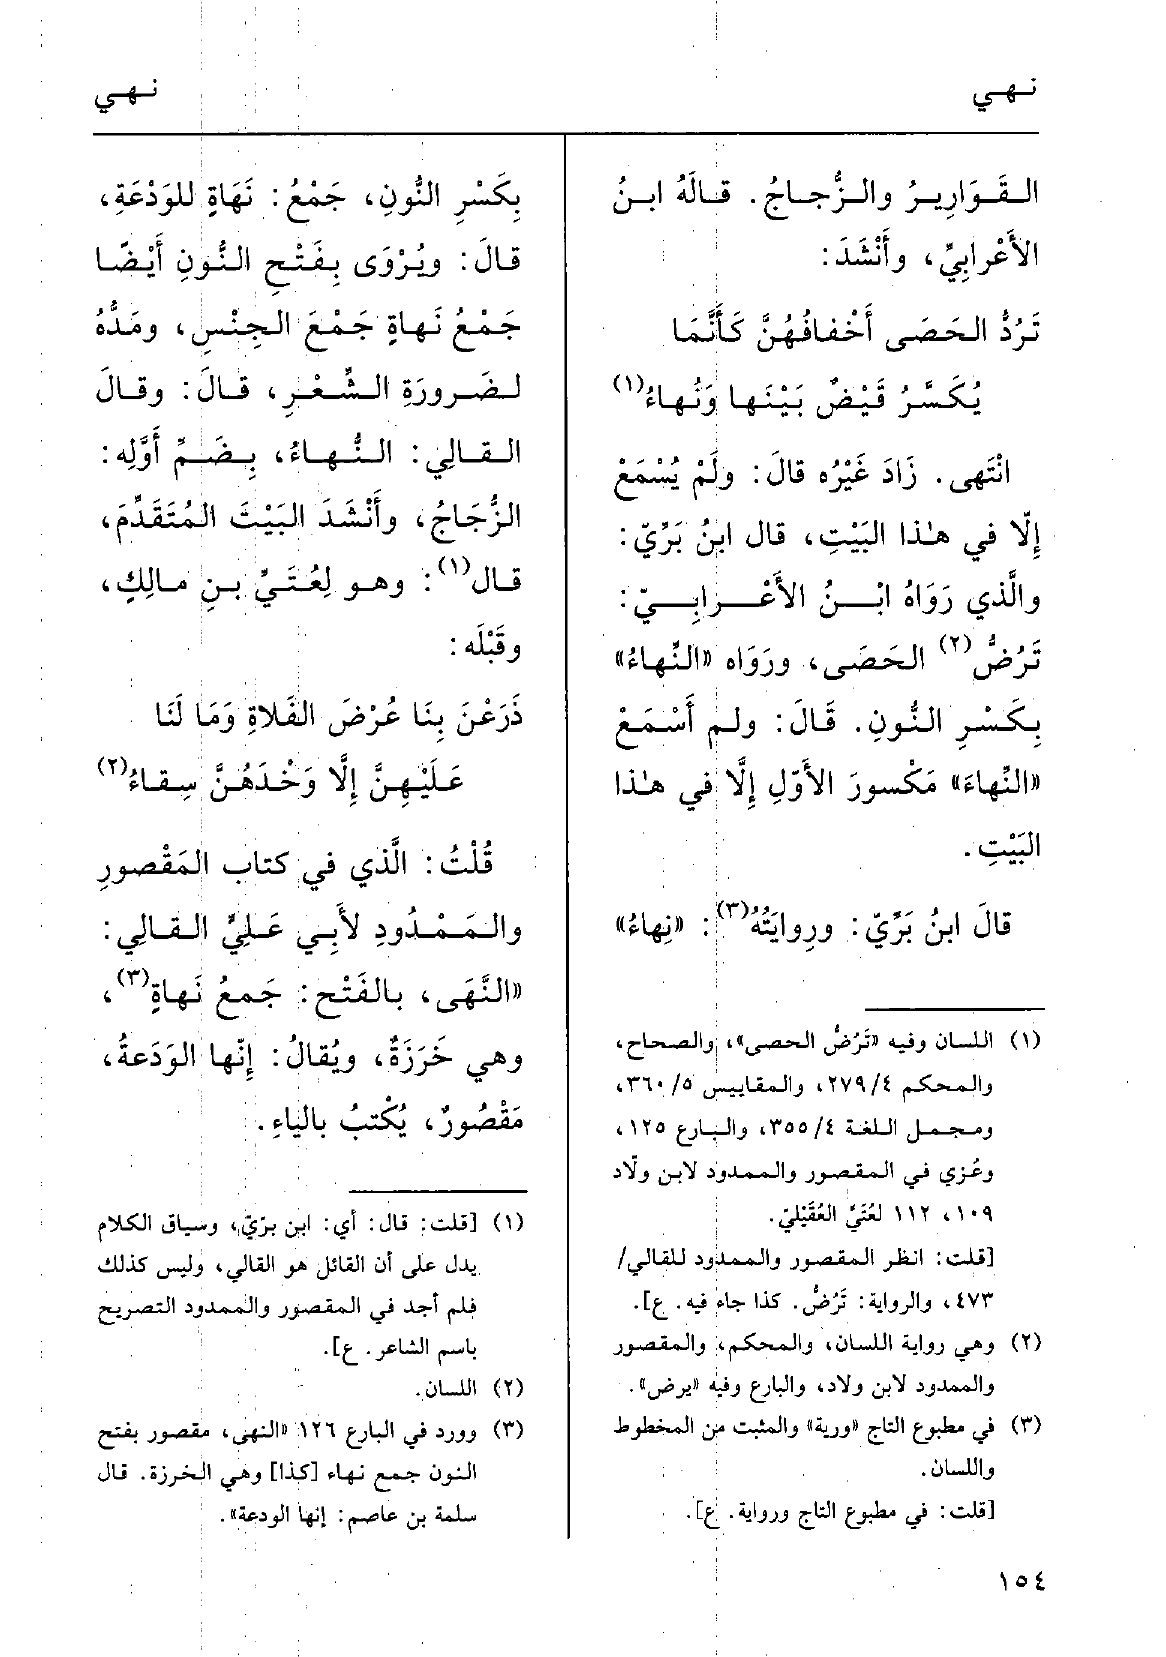 نهي
نهي
القَوَارِيرُ والزُّجاجُ. قالَهُ ابنُ
الأَعْرابِيِّ، وأَنْشَدَ:
تَرُدُّ الحَصَى أَخْفافُهُنَّ كَأَنَّمَا
يُكَسَّرُ قَيْضٌ بَيْنَها وَنُهاءُ(١)
انْتَهى. زَادَ غَيْرُه قالَ: ولَمْ يُسْمَعْ
إلّا في هٰذا البَيْتِ، قال ابنُ بَرِّيّ:
والَّذي رَوَاهُ ابْنُ الأَعْرابِيّ:
تَرُضُّ(٢) الحَصَى، ورَوَاه «النِّهاءُ»
بِكَسْرِ النُّونِ. قَالَ: ولم أَسْمَعْ
«النِّهاءَ» مَكْسورَ الأَوّلِ إلَّا في هٰذا
البَيْتِ.
قالَ ابنُ بَرِّيّ: ورِوايَتُهُ(٣): «نِهاءُ»
(١) اللسان وفيه «تَرُضُّ الحصى»، والصحاح،
والمحكم ٢٧٩/٤، والمقاييس ٣٦٠/٥،
ومجمل اللغة ٣٥٥/٤، والبارع ١٢٥،
وعُزي في المقصور والممدود لابن ولّاد
١٠٩، ١١٢ لعُتَيِّ العُقَيْليّ.
[قلت: انظر المقصور والممدود للقالي/
٤٧٣، والرواية: تَرُضُّ. كذا جاء فيه. ع].
(٢) وهي رواية اللسان، والمحكم، والمقصور
والممدود لابن ولاد، والبارع وفيه «يرض».
(٣) في مطبوع التاج «ورية» والمثبت من المخطوط
واللسان.
[قلت: في مطبوع التاج ورواية. ع].
بِكَسْرِ النُّونِ، جَمْعُ: نَهَاةٍ للوَدْعَةِ،
قالَ: ويُرْوَى بِفَتْحِ النُّونِ أَيْضًا
جَمْعُ نَهاةٍ جَمْعَ الجِنْسِ، ومَدُّهُ
لضَرورَةِ الشِّعْرِ، قالَ: وقالَ
القالي: النُّهاءُ، بِضَمِّ أَوَّلِه:
الزُّجَاجُ، وأَنْشَدَ البَيْتَ المُتَقَدِّمَ،
قال(١): وهو لِعُتَيِّ بنِ مالِكٍ،
وقَبْلَه:
ذَرَعْنَ بِنَا عُرْضَ الفَلاةِ وَمَا لَنَا
عَلَيْهِنَّ إلَّا وَخْدَهُنَّ سِقاءُ(٢)
قُلْتُ: الَّذي في كتاب المَقْصورِ
والمَمْدُودِ لأَبي عَليٍّ القالي:
«النَّهَى، بالفَتْحِ: جَمعُ نَهاةٍ(٣)،
وهي خَرَزَةٌ، ويُقالُ: إنّها الوَدَعةُ،
مَقْصُورٌ، يُكْتبُ بالياءِ.
(١) [قلت: قال: أي: ابن برّيّ، وسياق الكلام
يدل على أن القائل هو القالي، وليس كذلك
فلم أجد في المقصور والممدود التصريح
باسم الشاعر. ع].
(٢) اللسان.
(٣) وورد في البارع ١٢٦ «النهى، مقصور بفتح
النون جمع نهاء [كذا] وهي الخرزة. قال
سلمة بن عاصم: إنها الودعة».
١٥٤